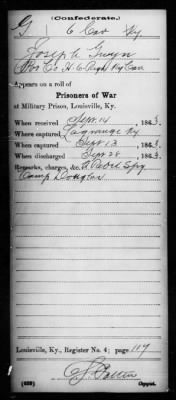 (Confederate.)
G 6 Cav Ky
Joseph Gwyn
Pvt Co. H. 6 Regt Ky Cav
Appears on a roll of
Prisoners of War
at Military Prison, Louisville, Ky.
When received Sept. 14, 1863
Where captured Lagrange Ky
When captured Sept. 13, 1863
When discharged Sept 28, 1863
Remarks, charges, &c. A Rebel Spy
Camp Douglas
Louisville, Ky., Register No. 4; page 117
Copyist.